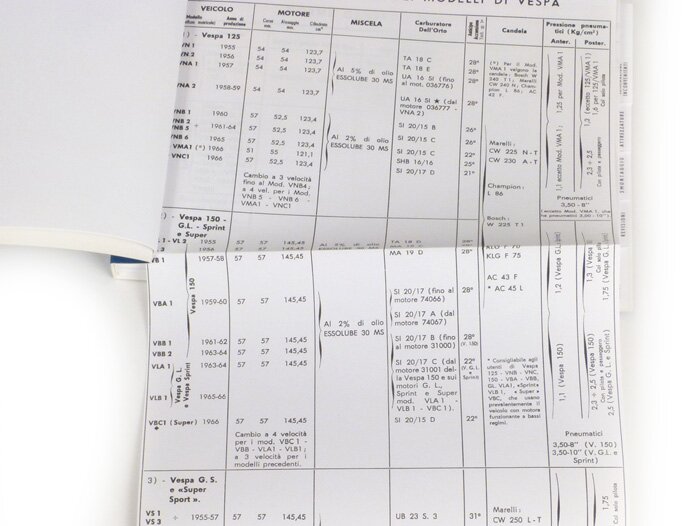 MODELLI DI VESPA
VEICOLO MOTORE MISCELA Carburatore Dell'Orto Candela Pressione pneumatici (Kg/cm²)
Modello Anno di produzione Corsa mm. Alesaggio mm. Cilindrata cm³ Anter. Poster.
) - Vespa 125
VN 1 1955 54 54 123,7 TA 18 C 28°
VN 2 1956 54 54 123,7 TA 18 E 28°
VNA 1 1957 54 54 123,7 UA 16 SI (fino al mot. 036776) 28°
Al 5% di olio ESSOLUBE 30 MS
VNA 2 1958-59 54 54 123,7 UA 16 SI ★ (dal motore 036777 - VNA 2) 28°
(*) Per il Mod. VMA 1 valgono le candele: Bosch W 240 T1; Marelli CW 240 N; Champion L 86; AC 42 F
1,25 per Mod. VMA 1
1,1 (eccetto Mod. VMA 1)
1,3 (eccetto 125/VMA1)
1,6 per 125/VMA1
Col solo pilota
2,3 ÷ 2,5
Con pilota e passeggero
VNB 1 1960 57 52,5 123,4 SI 20/15 B 28°
VNB 2
VNB 5 ÷ 1961-64 57 52,5 123,4 SI 20/15 C 26°
VNB 6 1965 57 52,5 123,4 SI 20/15 C 22°
VMA1 (*) 1966 51 55 121,1 SHB 16/16 25°
VNC1 1966 57 52,5 123,4 SI 20/17 D 21°
Al 2% di olio ESSOLUBE 30 MS
Marelli:
CW 225 N - T
CW 230 A - T
Champion:
L 86
Bosch:
W 225 T1
Cambio a 3 velocità
fino al Mod. VNB4;
a 4 vel. per i Mod.
VNB5 - VNB6 -
VMA1 - VNC1
Pneumatici
3,50 - 8"
(eccetto Mod. VMA 1, che
ha pneumatici 3,50 - 10")
INCONVENIENTI
ATTREZZATURE
SMONTAGGIO
REVISIONI
) - Vespa 150 -
G.L. - Sprint
e Super
VL 1 - VL 2 1955 57 57 145,45 TA 18 D 28°
VL 3 1956 57 57 145,45
VB 1 1957-58 57 57 145,45 MA 19 D 28°
Al 5% di olio ESSOLUBE 30 MS
KLG F 70
KLG F 75
AC 43 F
* AC 45 L
Vespa 150
VBA 1 1959-60 57 57 145,45 SI 20/17 (fino al motore 74066) 28°
SI 20/17 A (dal motore 74067)
VBB 1 1961-62 57 57 145,45 SI 20/17 B (fino al motore 31000) 28° (V. 150)
VBB 2 1963-64 57 57 145,45
VLA 1 1963-64 57 57 145,45 SI 20/17 C (dal motore 31001 della Vespa 150 e sui motori G. L., Sprint e Super mod. VLA1 - VLB1 - VBC1). 22° (V. G.L. e Sprint)
VLB 1 1965-66 57 57 145,45
Vespa G. L. e Vespa Sprint
VBC1 (Super) 1966 57 57 145,45 SI 20/15 D 22°
Al 2% di olio ESSOLUBE 30 MS
* Consigliabile agli
utenti di Vespa
125 - VNB - VNC,
150 - VBA - VBB,
GL VLA1, Sprint
VLB 1, « Super »
VBC, che usano
prevalentemente il
veicolo con motore
funzionante a bassi
regimi.
1,2 (Vespa G.L. e Sprint)
1,1 (Vespa 150)
1,3 (Vespa 150)
1,75 (Vespa G.L. e Sprint)
Col solo pilota
2,3 ÷ 2,5 (Vespa 150)
Con pilota e passeggero
2,5 (Vespa G.L. e Sprint)
Cambio a 4 velocità
per i mod. VBC 1 -
VBB - VLA1 - VLB1;
a 3 velocità per i
modelli precedenti.
Pneumatici
3,50-8" (V. 150)
3,50-10" (V. G.L. e
Sprint)
3) - Vespa G. S.
e «Super
Sport ».
VS 1
VS 3 ÷ 1955-57 57 57 145,45 UB 23 S. 3 31°
Marelli:
CW 250 L - T
1,75
Col solo pilota